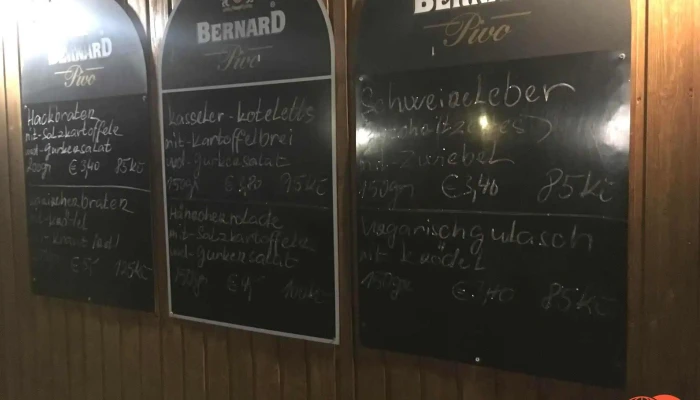 BERNARD
Pivo
Hackbraten
mit-Salzkartoffele
und-gurkensalat
200gr € 3,40 85Kč
mit-knödel
€5,- 125Kč
BERNARD
Pivo
kasseler-koteletts
mit-kartoffelbrei
und-gurkensalat
150gr €3,80 95Kč
Hühnchenrolade
mit-Salzkartoffele
und-gurkensalat
150gr €4,- 100Kč
BERNARD
Pivo
Schweineleber
mit-Zwiebel
150gr €3,40 85Kč
Ungarischgulasch
mit knödel
150gr €3,40 85Kč